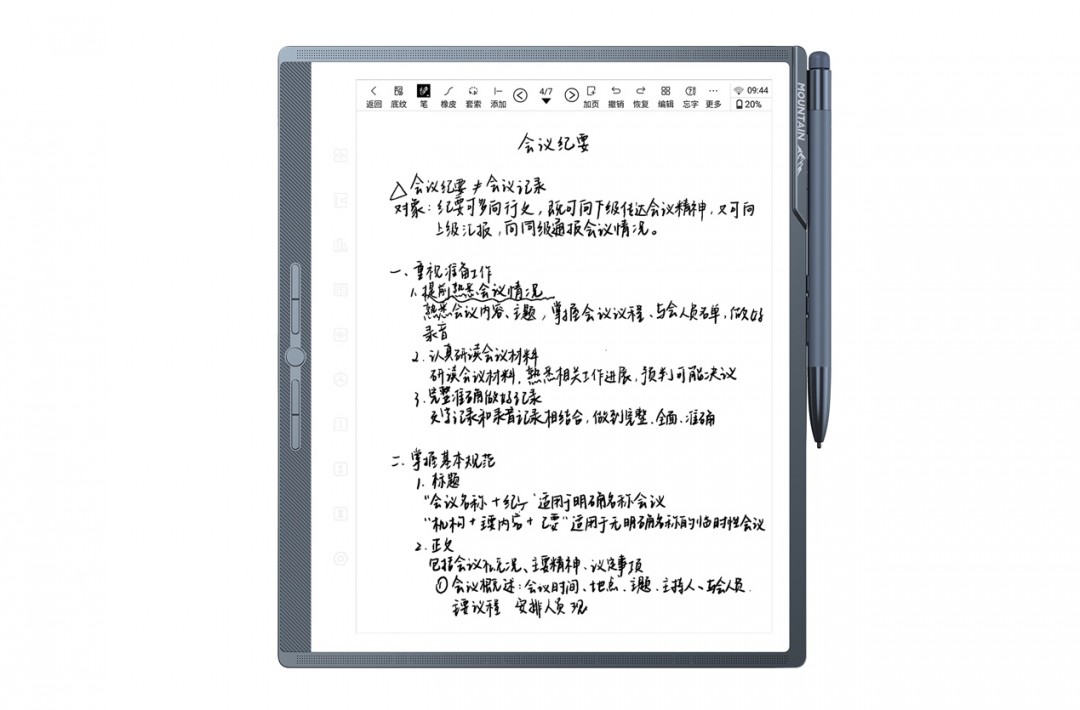 返回 底纹 笔 橡皮 套索 添加 4/7 加页 撤销 恢复 编辑 忘字 更多 09:44 20%
MOUNTAIN
会议纪要
△会议纪要≠会议记录
对象：纪要可多向行文，既可向下级传达会议精神，又可向
上级汇报，向同级通报会议情况。
一、重视准备工作
1.提前熟悉会议情况
熟悉会议内容、主题，掌握会议议程、与会人员名单，做好
录音
2.认真研读会议材料
研读会议材料，熟悉相关工作进展，预判可能决议
3.完整准确做好记录
记录和录音记录相结合，做到完整、全面、准确
二、掌握基本规范
1.标题
“会议名称+纪 ”适用于明确名称会议
“机构+主要内容+ 要”适用于无明确名称的临时性会议
2.正文
包括会议概况、主要精神、议定事项
①会议概述：会议时间、地点、主题、主持人、与会人员、
主要议程 安排人员